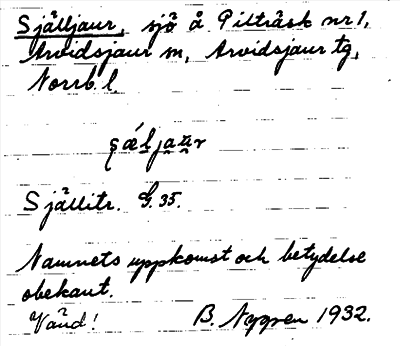 Själljaur, sjö å Pilträsk nr 1,
Arvidsjaur sn, Arvidsjaur tg,
Norrb. l.
Själlitr. G. 35.
Namnets uppkomst och betydelse
obekant.
Vänd! B. Nygren 1932.